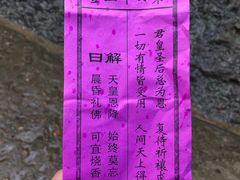 君皇圣后总为恩 复待祈禳
一切有情皆受用 人间天上得
解曰
天皇恩降 始终莫忘
晨昏礼佛 可宜烧香